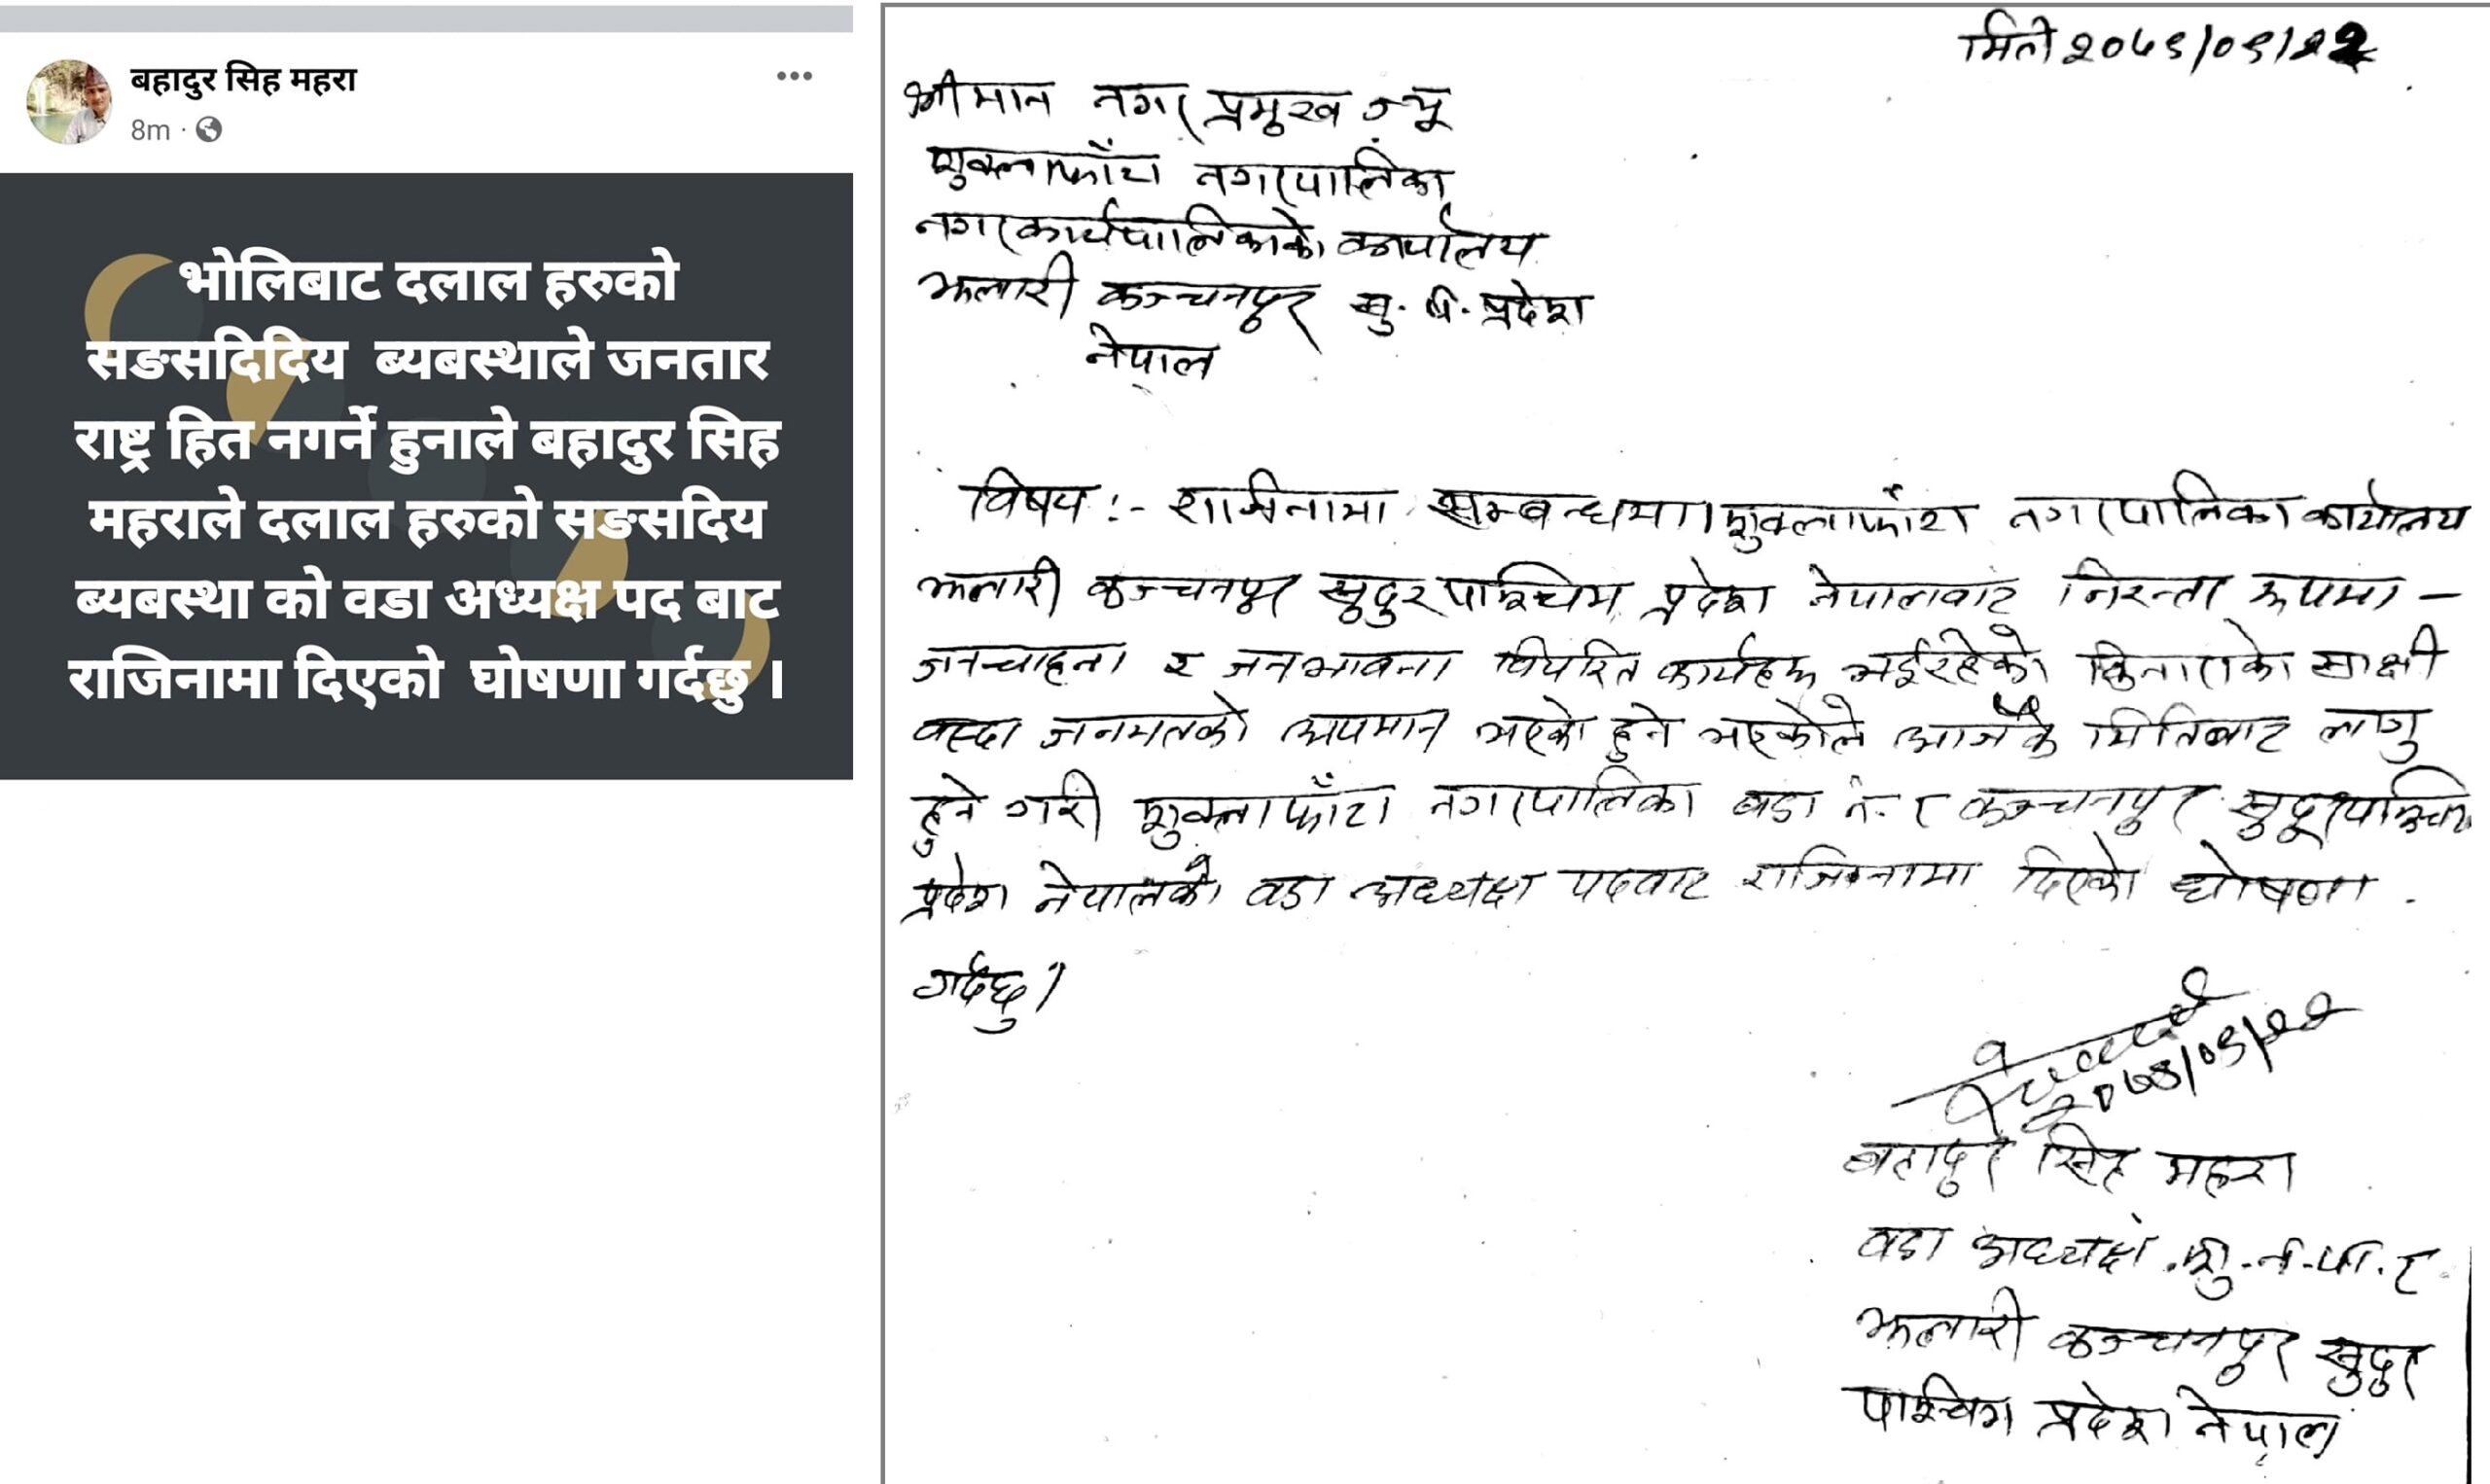 बहादुर सिंह महरा
8m
भोलिबाट दलाल हरुको
सङसदिदिय ब्यबस्थाले जनतार
राष्ट्र हित नगर्ने हुनाले बहादुर सिह
महराले दलाल हरुको सङसदिय
ब्यबस्था को वडा अध्यक्ष पद बाट
राजिनामा दिएको घोषणा गर्दछु ।
मिति
श्रीमान नगर प्रमुख ज्यू
शुक्लाफाँटा नगरपालिका
नगरकार्यपालिकाको कार्यालय
झलारी कञ्चनपुर सु. प. प्रदेश
नेपाल
विषय :- राजिनामा सम्बन्धमा। शुक्लाफाँटा नगरपालिका कार्यालय
झलारी कञ्चनपुर सुदुरपाश्चिम प्रदेश नेपालबाट निरन्तर रूपमा -
जनचाहना र जनभावना विपरित कार्यहरू भईरहेको साक्षी
बस्दा जनमतको अपमान भएको हुने भएकोले आजैकै मितिबाट लागु
हुने गरी शुक्लाफाँटा नगरपालिका वडा नं. कञ्चनपुर सुदूरपाश्चिम
प्रदेश नेपालको वडा अध्यक्ष पदबाट राजिनामा दिएको घोषणा
गर्दछु।
बहादुर सिंह महरा
वडा अध्यक्ष शु.न.पा.
झलारी कञ्चनपुर सुदुर
पाश्चिम प्रदेश नेपाल